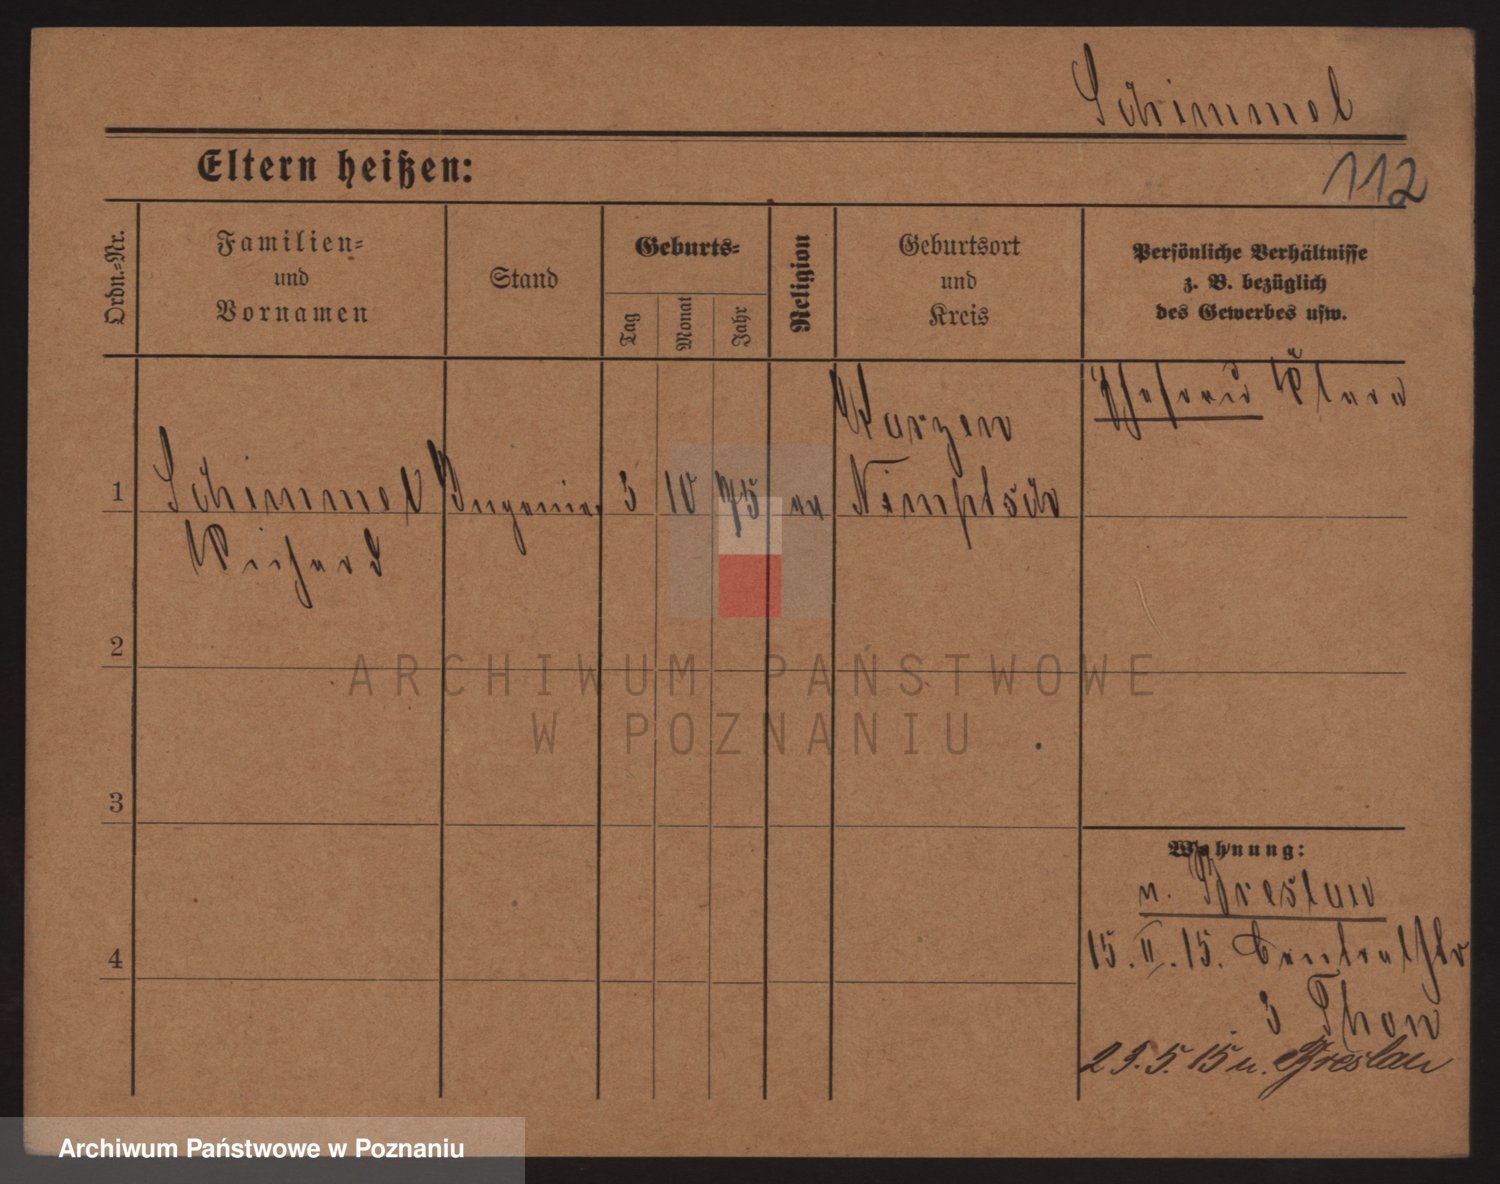 Schimmel
Eltern heißen:
112
Ordn.-Nr.
Familien-
und
Vornamen
Stand
Geburts-
Tag
Monat
Jahr
Religion
Geburtsort
und
Kreis
Persönliche Verhältnisse
z. B. bezüglich
des Gewerbes usw.
1
Schimmel
Richard
3
10
75
ev
Nimptsch
Ehefrau
2
3
4
Wohnung:
n. Breslau
15. II. 15. Centralstr
3 Thon
23. 5. 15 n. Breslau
ARCHIWUM PAŃSTWOWE
W POZNANIU
Archiwum Państwowe w Poznaniu